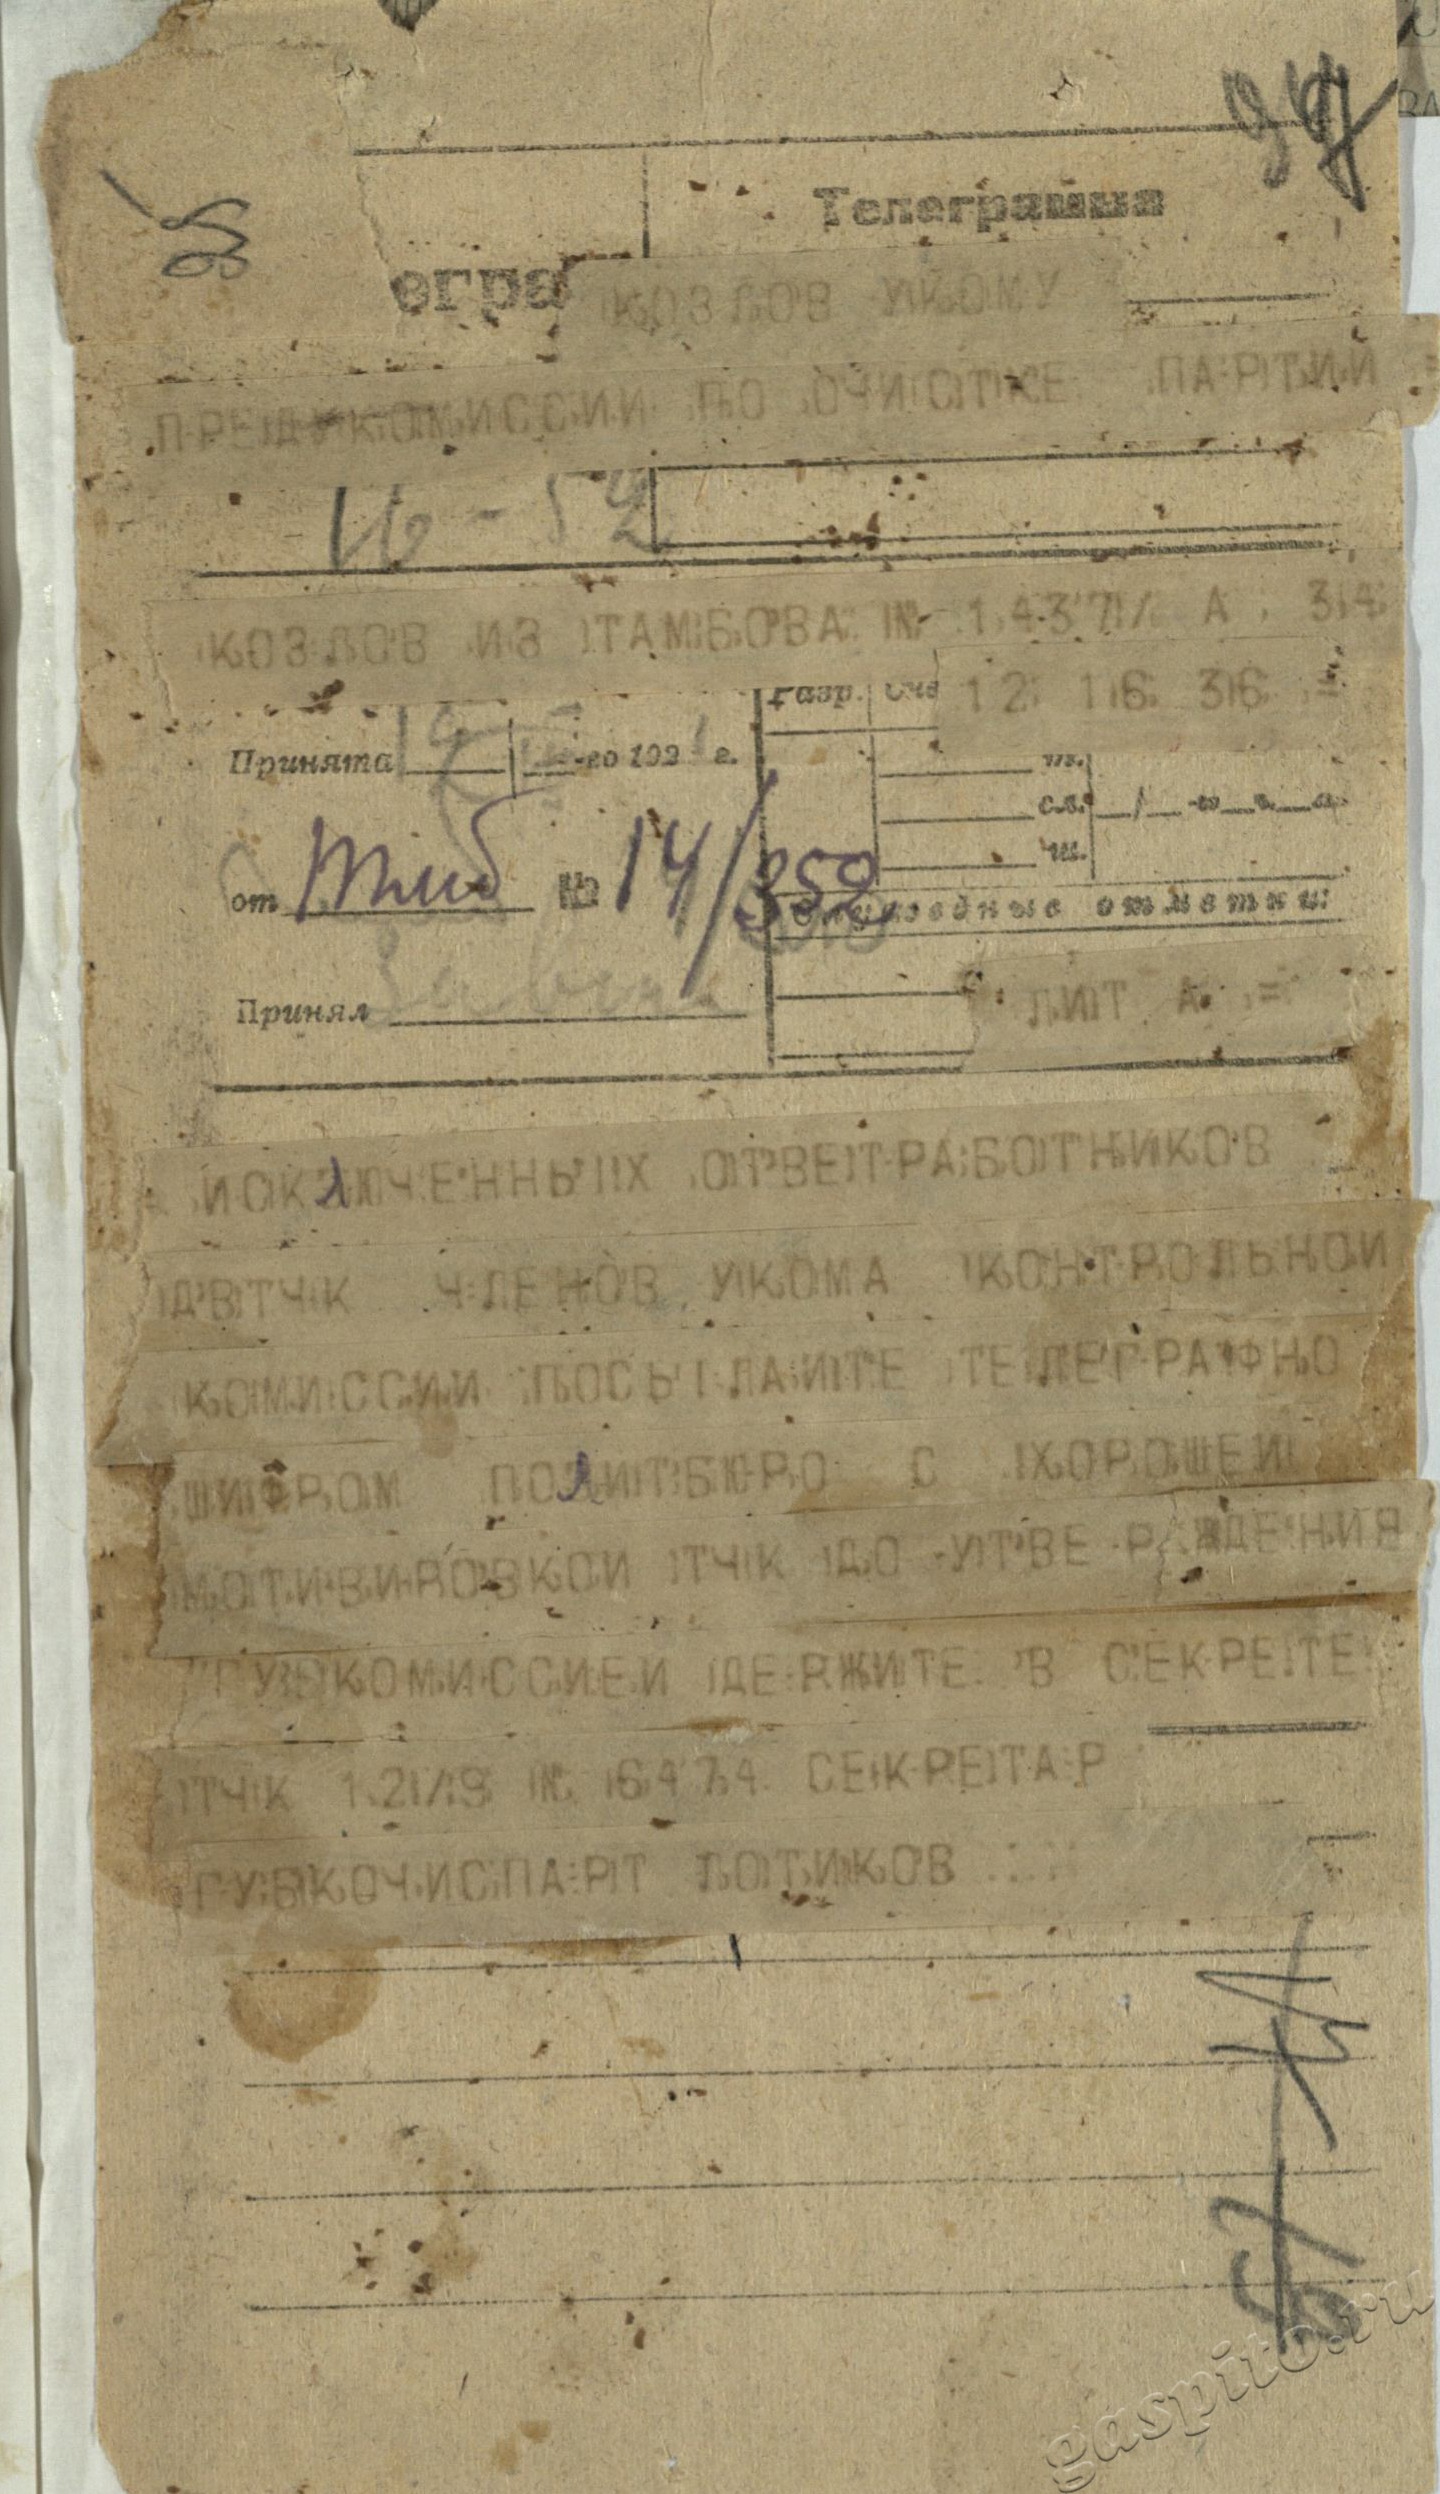 Телеграмма
егра
КОЗЛОВ УКОМУ
ПРЕДУКОМИССИИ ПО ОЧИСТКЕ ПАРТИИ =
16 - 52
КОЗЛОВ ИЗ ТАМБОВА № 14371/ А 34
Разр. 12 16 36 =
Принята -го 192 г.
т.
с.в. / -го ч. м.
ш.
от Тмб № 14/352
Служебные отметки:
Принял
ЛИТ А =
ИСКЛЮЧЕННЫХ ОТВЕТРАБОТНИКОВ
ДВТЧК ЧЛЕНОВ УКОМА КОНТРОЛЬНОИ
КОМИССИИ ПОСЫЛАИТЕ ТЕЛЕГРАФНО
ШИФРОМ ПОЛИТБЮРО С ХОРОШЕИ
МОТИВИРОВКОИ ТЧК ДО УТВЕРЖДЕНИЯ
ГУБКОМИССИЕИ ДЕРЖИТЕ В СЕКРЕТЕ
ТЧК 12/9 № 6474 СЕКРЕТАР
ГУБКОЧИСПАРТ ПОТИКОВ
gaspito.ru